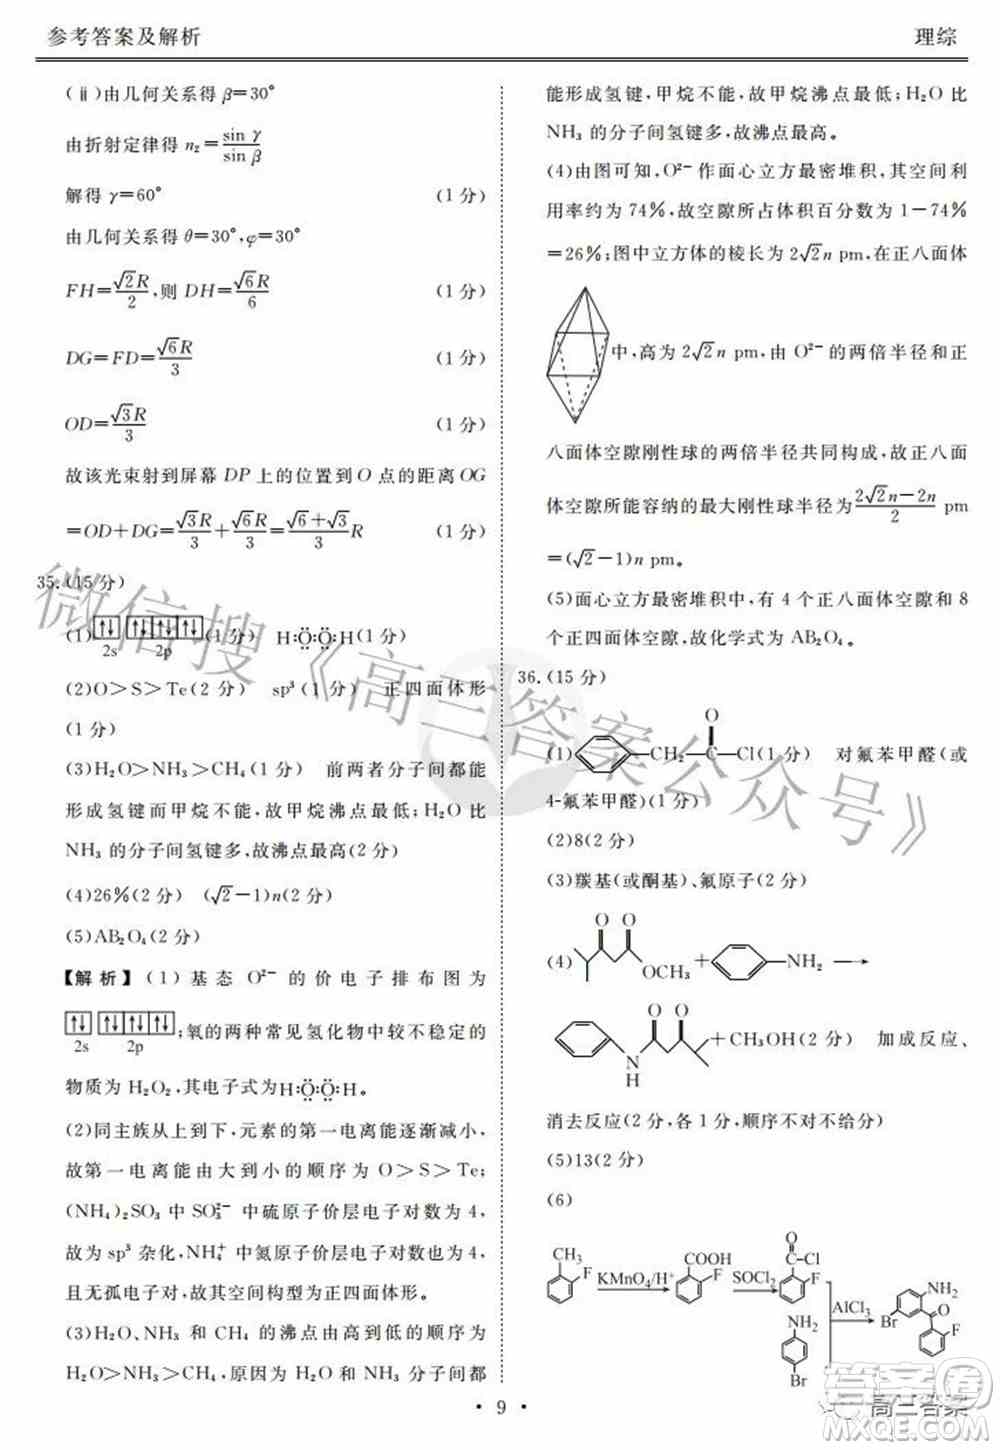 参考答案及解析
理综
(ⅱ)由几何关系得 β=30°
由折射定律得 n₂=sin γ/sin β
解得 γ=60° (1 分)
由几何关系得 θ=30°,φ=30°
FH=√2R/2,则 DH=√6R/6 (1 分)
DG=FD=√6R/3 (1 分)
OD=√3R/3 (1 分)
故该光束射到屏幕 DP 上的位置到 O 点的距离 OG
=OD+DG=√3R/3+√6R/3=(√6+√3)/3 R (1 分)
35.(15 分)
(1)[↑↓] [↑↓|↑↓|↑↓](1 分) H:Ö:Ö:H(1 分)
2s 2p
(2)O>S>Te(2 分) sp³(1 分) 正四面体形
(1 分)
(3)H₂O>NH₃>CH₄(1 分) 前两者分子间都能
形成氢键而甲烷不能,故甲烷沸点最低;H₂O 比
NH₃ 的分子间氢键多,故沸点最高(2 分)
(4)26%(2 分) (√2-1)n(2 分)
(5)AB₂O₄(2 分)
【解析】(1)基态 O²⁻ 的价电子排布图为
[↑↓] [↑↓|↑↓|↑↓];氧的两种常见氢化物中较不稳定的
2s 2p
物质为 H₂O₂,其电子式为H:Ö:Ö:H。
(2)同主族从上到下,元素的第一电离能逐渐减小,
故第一电离能由大到小的顺序为 O>S>Te;
(NH₄)₂SO₃ 中 SO₃²⁻ 中硫原子价层电子对数为 4,
故为 sp³ 杂化,NH₄⁺ 中氮原子价层电子对数为 4,
且无孤电子对,故其空间构型为正四面体形。
(3)H₂O、NH₃ 和 CH₄ 的沸点由高到低的顺序为
H₂O>NH₃>CH₄,原因为 H₂O、NH₃ 分子间都
能形成氢键,甲烷不能,故甲烷沸点最低;H₂O 比
NH₃ 的分子间氢键多,故沸点最高。
(4)由图可知,O²⁻ 作面心立方最密堆积,其空间利
用率约为 74%,故空隙所占体积百分数为 1-74%
=26%;图中立方体的棱长为 2√2n pm,在正八面体
中,高为 2√2n pm,由 O²⁻ 的两倍半径和正
八面体空隙刚性球的两倍半径共同构成,故正八面
体空隙所能容纳的最大刚性球半径为(2√2n-2n)/2 pm
=(√2-1)n pm。
(5)面心立方最密堆积中,有 4 个正八面体空隙和 8
个正四面体空隙,故化学式为 AB₂O₄。
36.(15 分)
O
(1) CH₂ C Cl(1 分) 对氟苯甲醛(或
4-氟苯甲醛)(1 分)
(2)8(2 分)
(3)羰基(或酮基)、氟原子(2 分)
O O
(4) OCH₃ + NH₂ →
O O
N H +CH₃OH(2 分) 加成反应、
消去反应(2 分,各 1 分,顺序不对不给分)
(5)13(2 分)
(6)
CH₃ F KMnO₄/H⁺ COOH F SOCl₂ O Cl F
NH₂ Br AlCl₃ NH₂ Br O F
· 9 ·
微信搜《高三答案公众号》
答案圈
高三答案